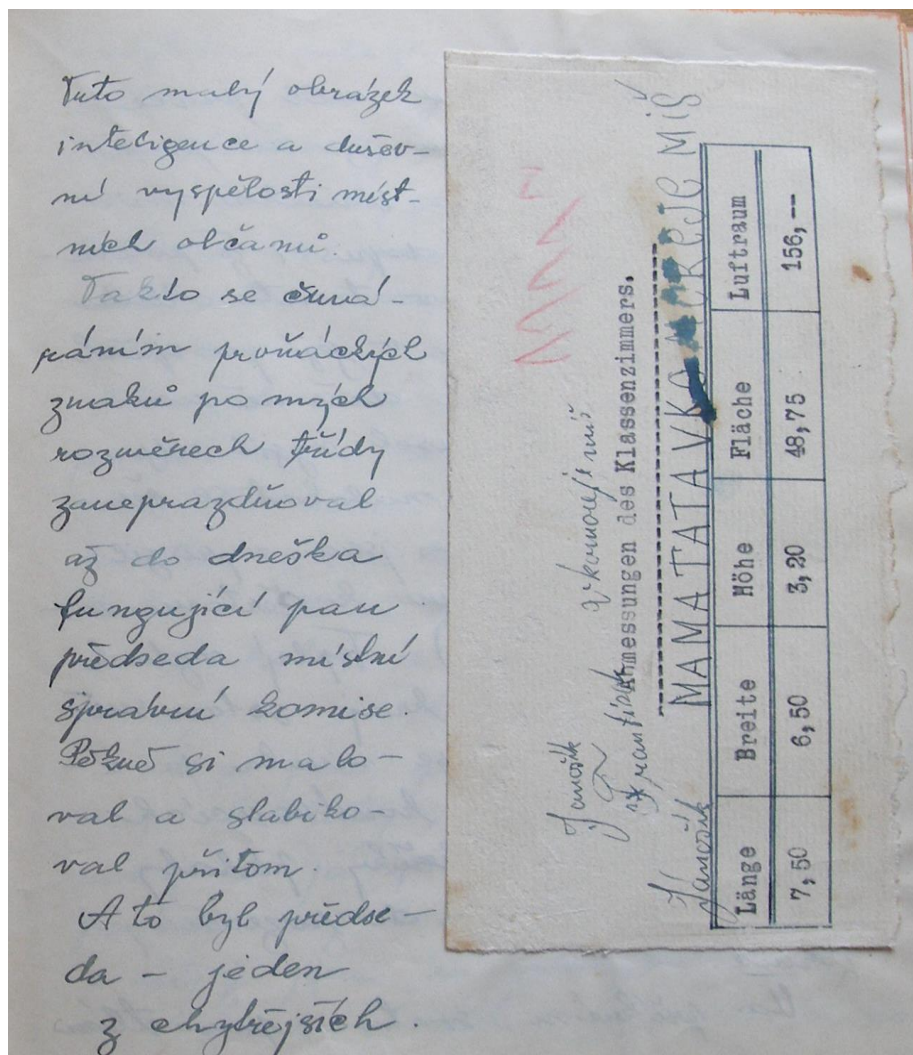 Tuto malý obrázek
inteligence a dušev-
ní vyspělosti míst-
ních občanů.
Takto se čmá-
ráním prvňáckých
znaků po mých
rozměrech třídy
zaneprazdňoval
až do dneška
fungující pan
předseda místní
správní komise.
Pěkně si malo-
val a slabiko-
val přitom.
A to byl předse-
da - jeden
z chytřejších.
Janošík
František
Abmessungen des Klassenzimmers.
MAMA TATA
Janošík
Länge Breite Höhe Fläche Luftraum
7,50 6,50 3,20 48,75 156,--